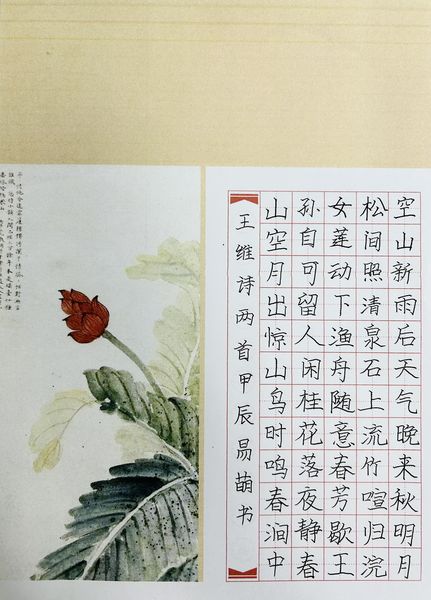 空山新雨后天气晚来秋明月
松间照清泉石上流竹喧归浣
女莲动下渔舟随意春芳歇王
孙自可留人闲桂花落夜静春
山空月出惊山鸟时鸣春涧中
王维诗两首甲辰易萌书